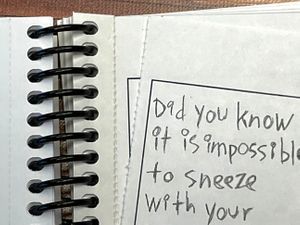 Did you know
it is impossible
to sneeze
with your